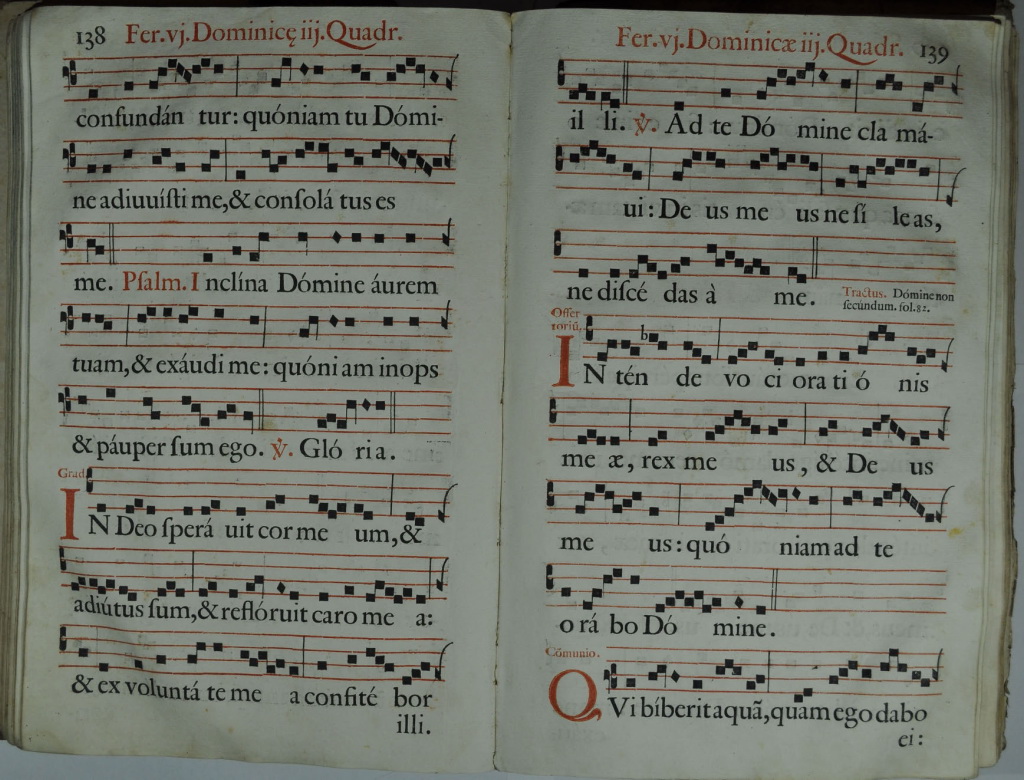 138 Fer.vj.Dominicę iij.Quadr.
confundán tur: quóniam tu Dómi-
ne adiuuíſti me,& conſolá tus es
me. Pſalm. I nclína Dómine áurem
tuam,& exáudi me: quóni am inops
& páuper ſum ego. ℣. Gló ria.
Grad.
IN Deo ſperá uit cor me um,&
adiútus ſum,& reflóruit caro me a:
& ex voluntá te me a confité bor
illi.
Fer.vj.Dominicæ iij.Quadr. 139
il li. ℣. Ad te Dó mine cla má-
ui: De us me us ne ſí le as,
ne diſcé das à me. Tractus. Dómine non
ſecúndum. fol.82.
Offer
toriũ.
IN tén de vo ci ora ti ó nis
me æ, rex me us, & De us
me us: quó niam ad te
o rá bo Dó mine.
Cómunio.
QVi bíberit aquã, quam ego dabo
ei: